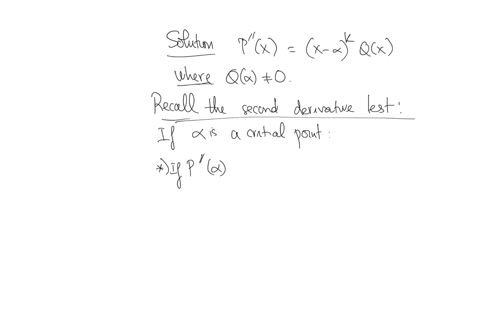 Solution P''(x) = (x-α)^k Q(x)
where Q(α) ≠ 0.
Recall the second derivative test:
If α is a critical point:
*) If P''(α)